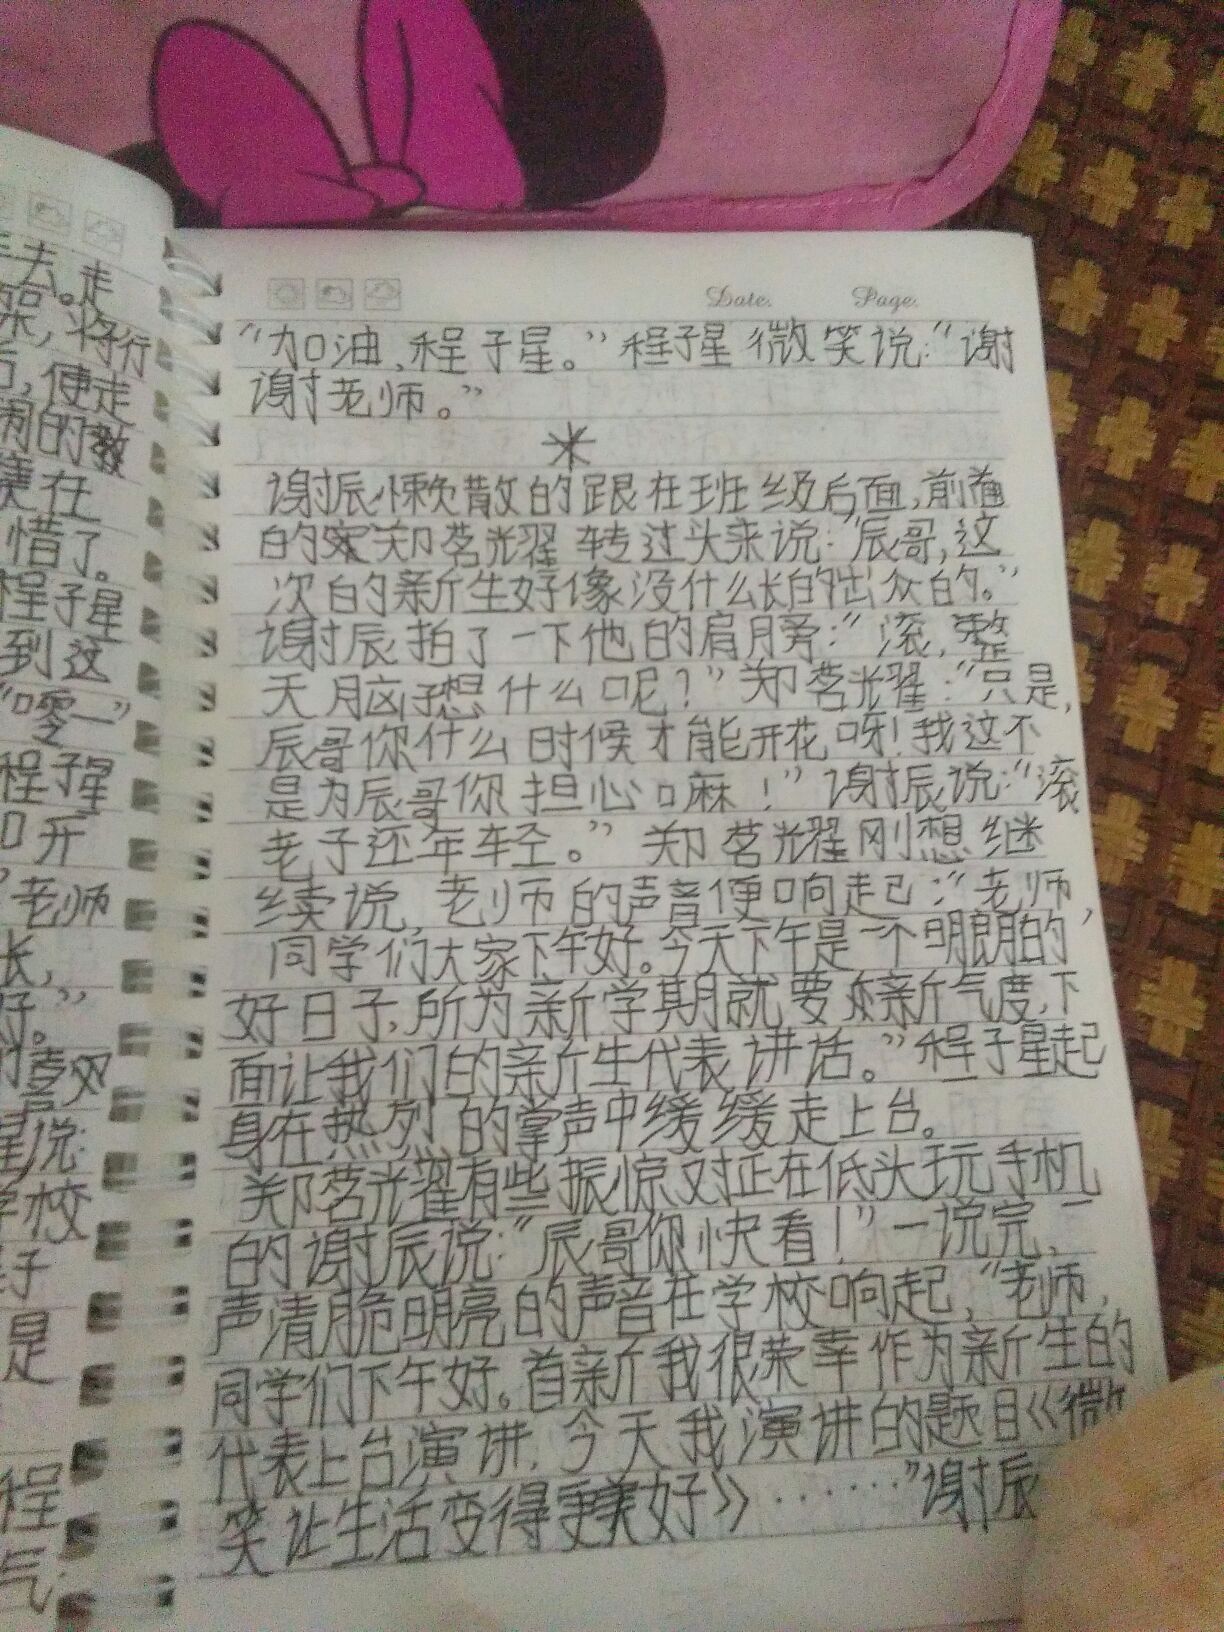 Date. Page.
"加油,程子星。"程子星微笑说:"谢
谢老师。"
谢辰懒散的跟在班级后面,前面
的郑茗光耀转过头来说:"辰哥,这
次的新生好像没什么长的出众的。"
谢辰拍了一下他的肩膀:"滚,整
天脑子想什么呢?"郑茗光耀:"只是,
辰哥你什么时候才能开花呀!我这不
是为辰哥你担心嘛!"谢辰说:"滚
老子还年轻。"郑茗光耀刚想继
续说,老师的声音便响起:"老师,
同学们大家下午好。今天下午是一个明朗的
好日子,所为新学期就要新气度,下
面让我们的新生代表讲话。"程子星起
身在热烈的掌声中缓缓走上台。
郑茗光耀有些振惊对正在低头玩手机
的谢辰说:"辰哥你快看!"一说完,一
声清脆明亮的声音在学校响起,"老师,
同学们下午好。首新我很荣幸作为新生的
代表上台演讲,今天我演讲的题目《微
笑让生活变得更美好》······"谢辰
去。走
将行
,使走
的教
在
惜了。
程子星
到这
"嘭一"
程子星
开
老师
长,
好。"
喜欢
星说:
学校
子
是
程
气